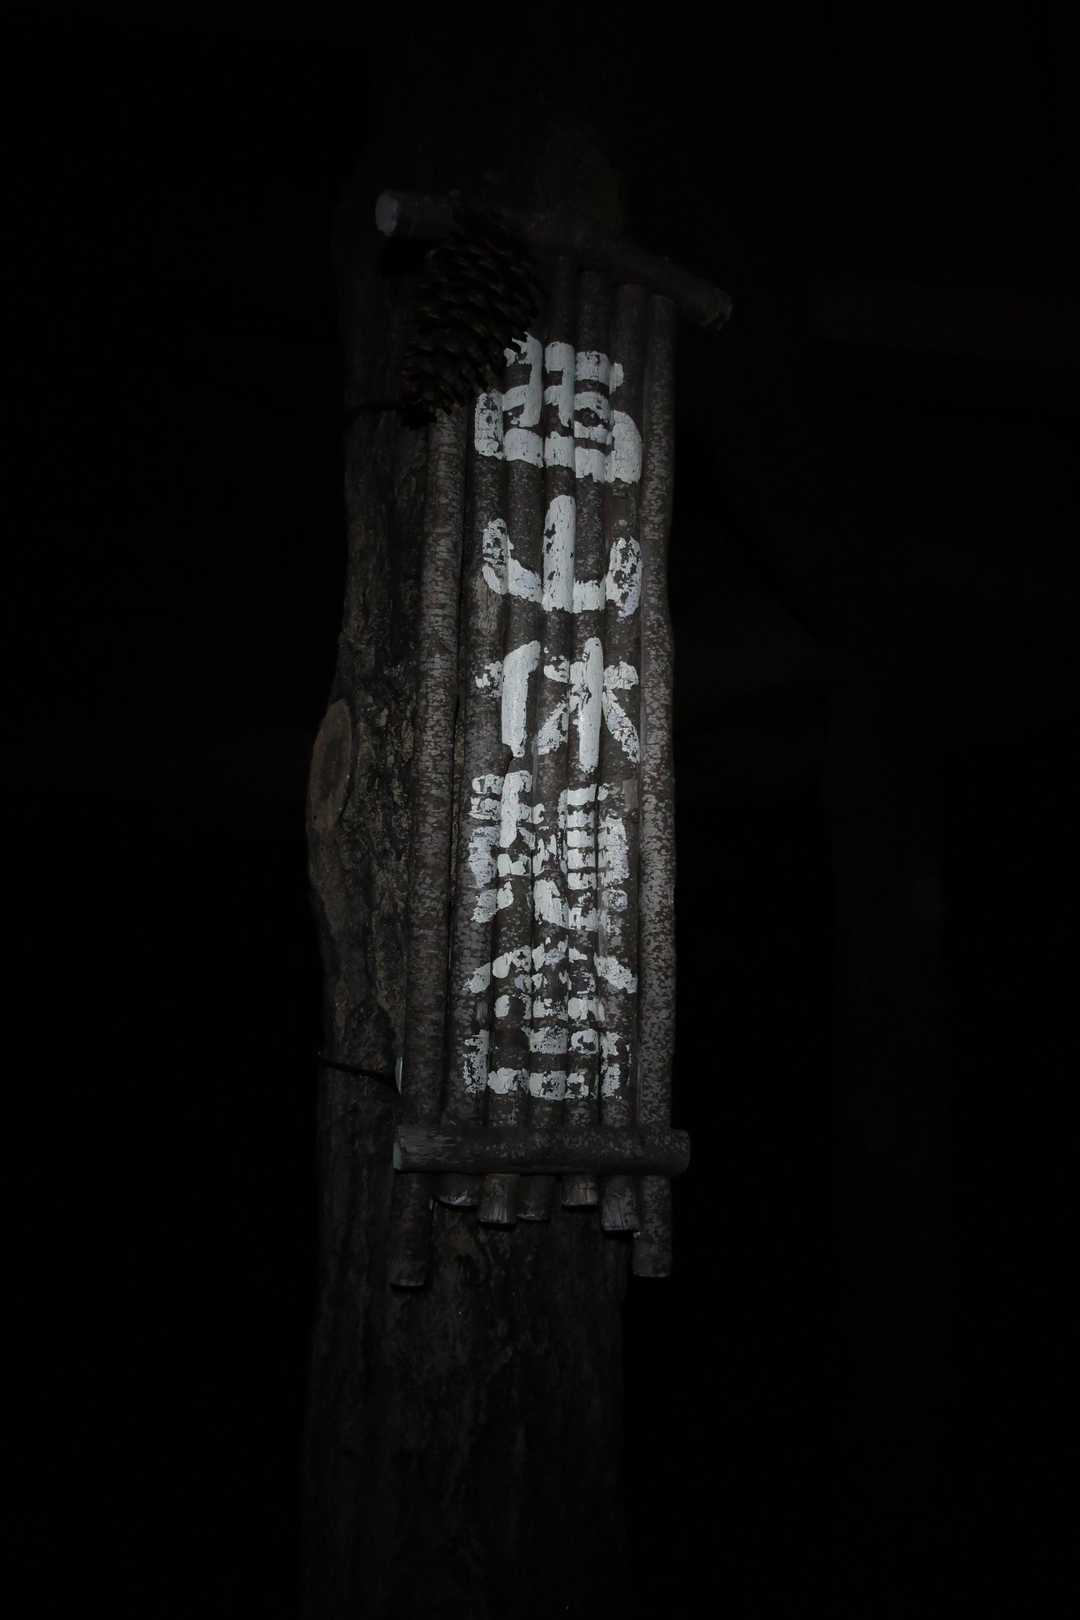 西山休憩舎